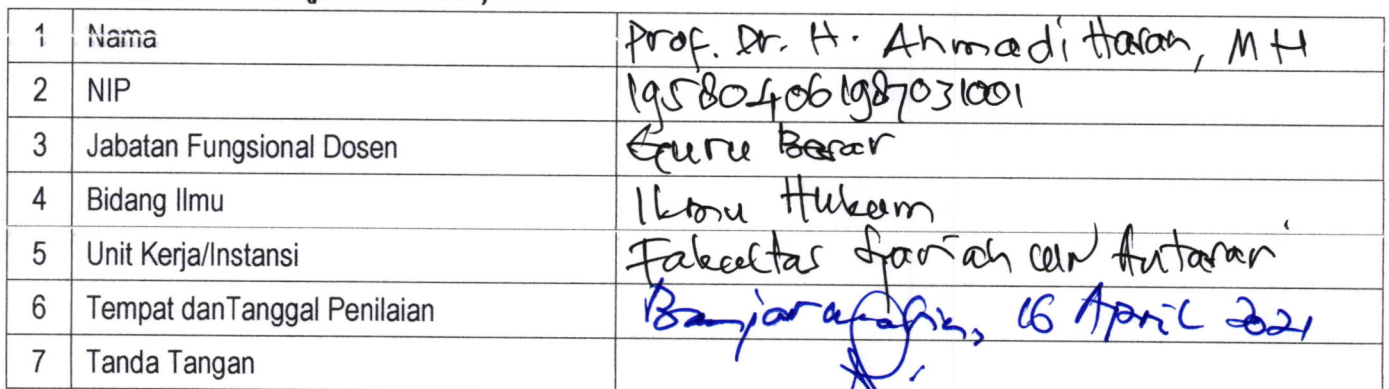 1 Nama Prof. Dr. H. Ahmadi Hasan, MH
2 NIP 195804061987031001
3 Jabatan Fungsional Dosen Guru Besar
4 Bidang Ilmu Ilmu Hukum
5 Unit Kerja/Instansi Fakultas Syariah UIN Antasari
6 Tempat danTanggal Penilaian Banjarmasin, 16 April 2021
7 Tanda Tangan